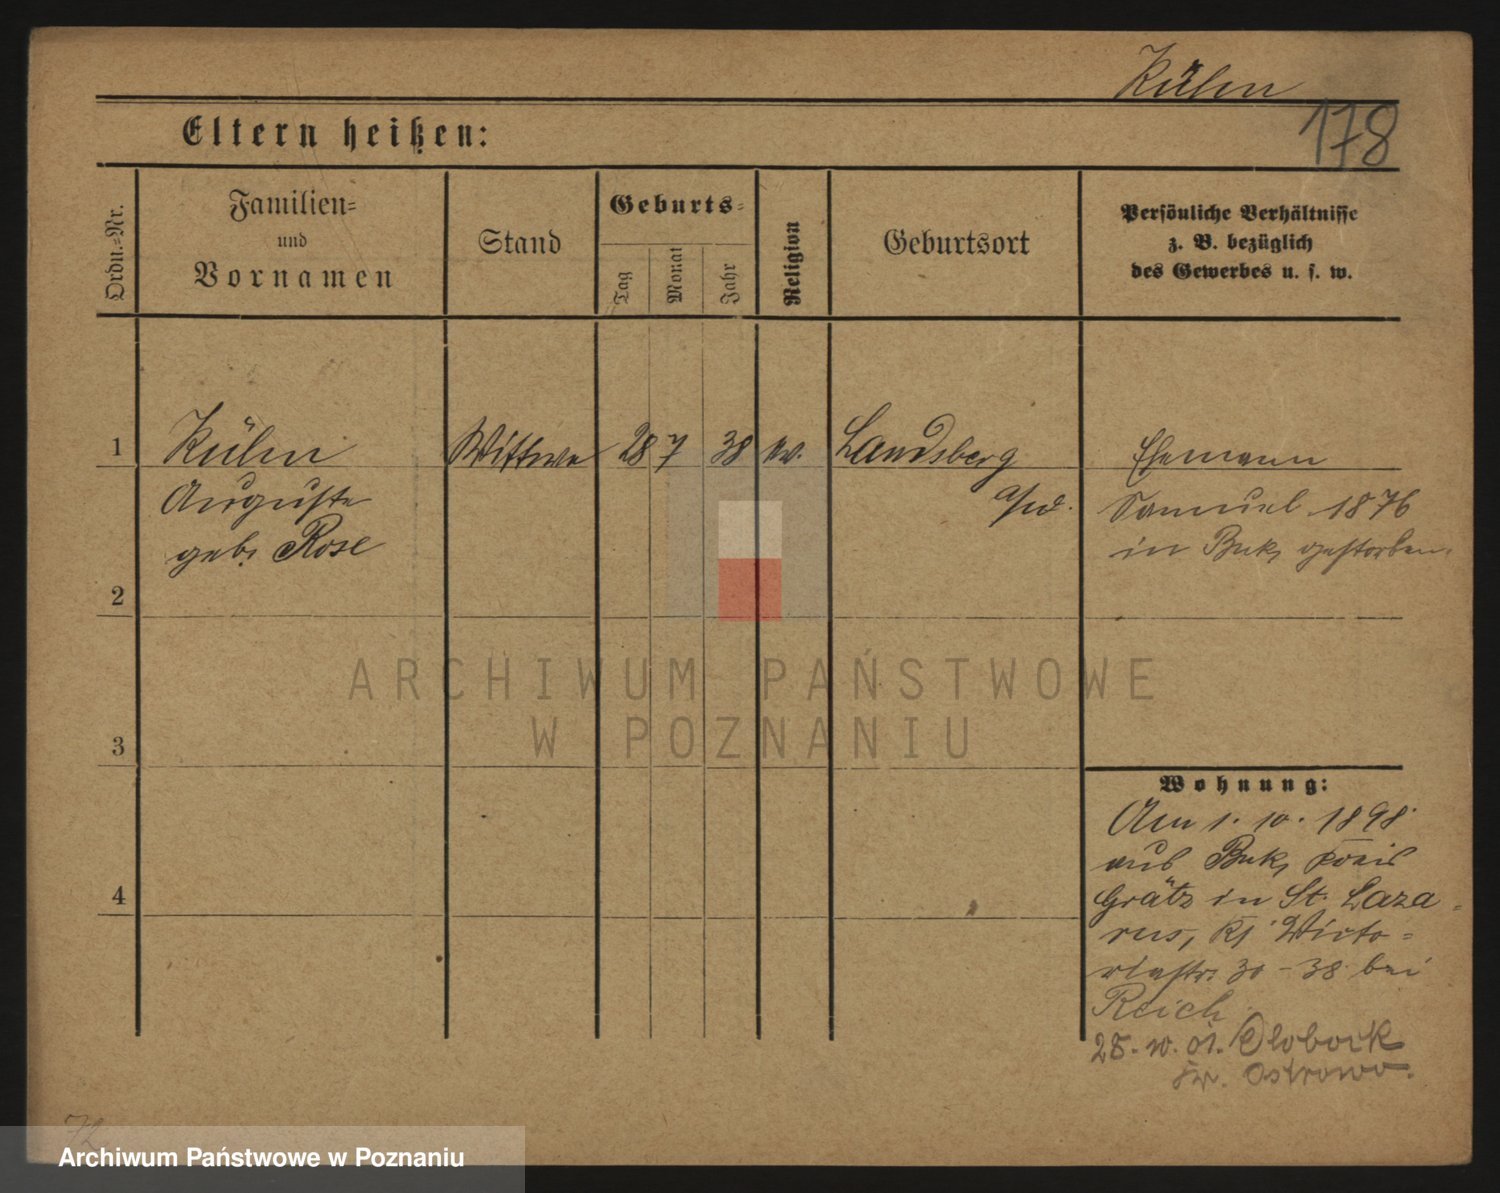 Kühn
178
Eltern heißen:
Ordn.-Nr.
Familien-
und
Vornamen
Stand
Geburts-
Tag
Monat
Jahr
Religion
Geburtsort
Persönliche Verhältnisse
z. B. bezüglich
des Gewerbes u. s. w.
1 Kühn Wittwe 28 7 38 ev. Landsberg Ehemann
Auguste a/W. Samuel 1876
geb. Rose in Buk gestorben.
2
ARCHIWUM PAŃSTWOWE
W POZNANIU
3
4
Wohnung:
Am 1. 10. 1898
aus Buk, Kreis
Grätz in St. Laza-
rus, Victo-
riastr. 30-38 bei
Reich
28. 10. 01. Olobock
Kr. Ostrowo.
72
Archiwum Państwowe w Poznaniu